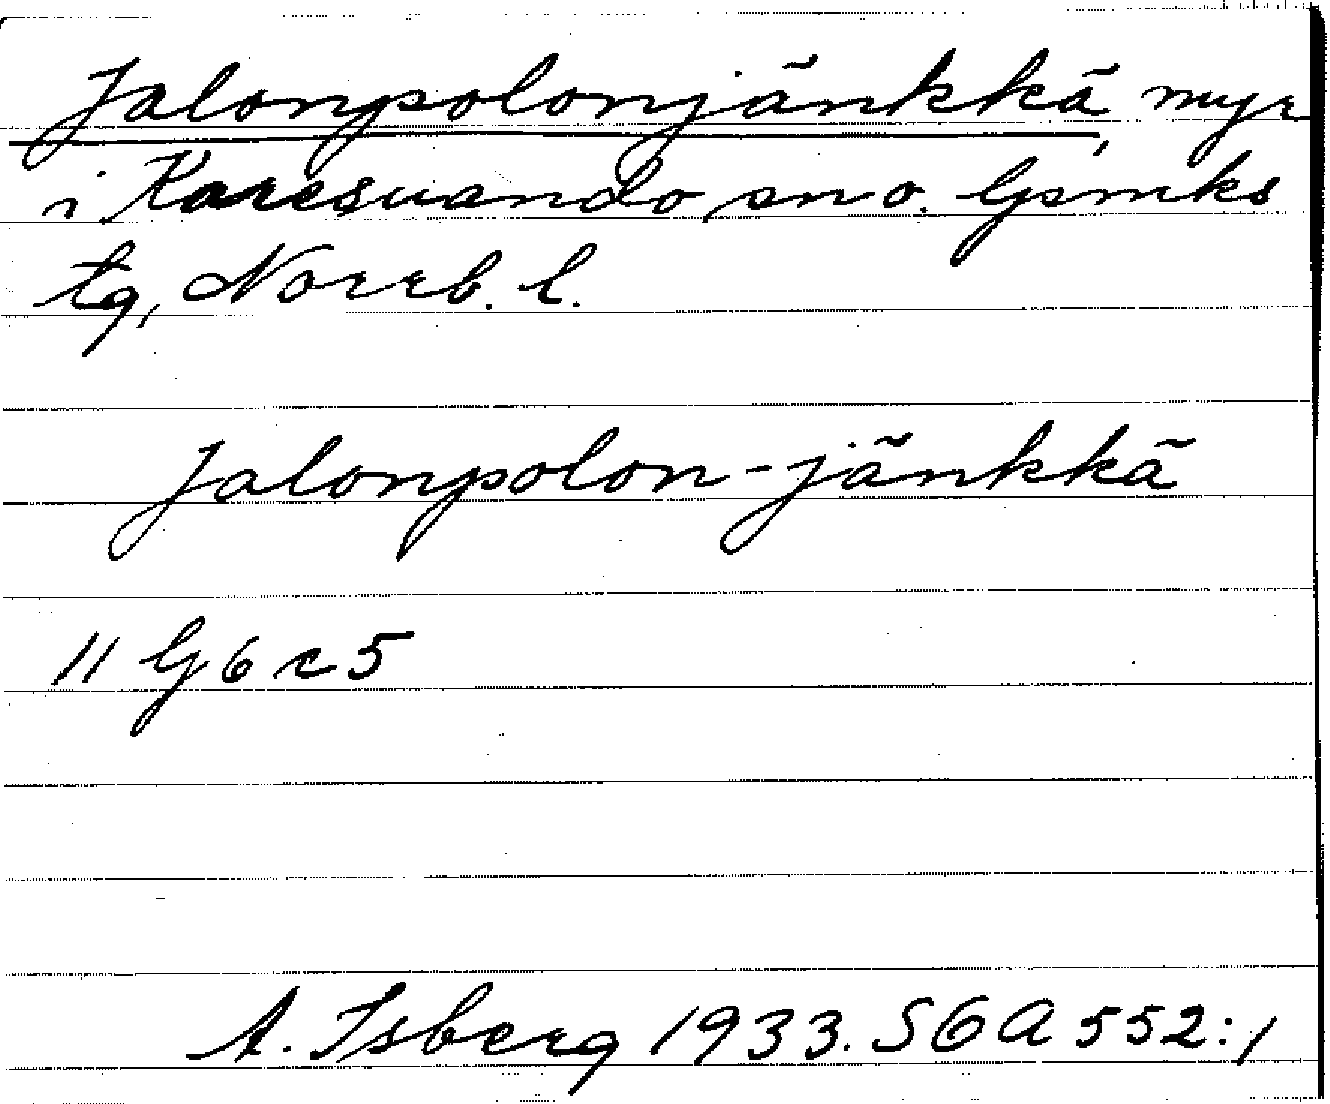 Jalonpolonjänkkä, myr
i Karesuando sn o. Gsmks
tg, Norrb. l.
Jalonpolon-jänkkä
11 G 6 c 5
A. Isberg 1933. SOA 552:1